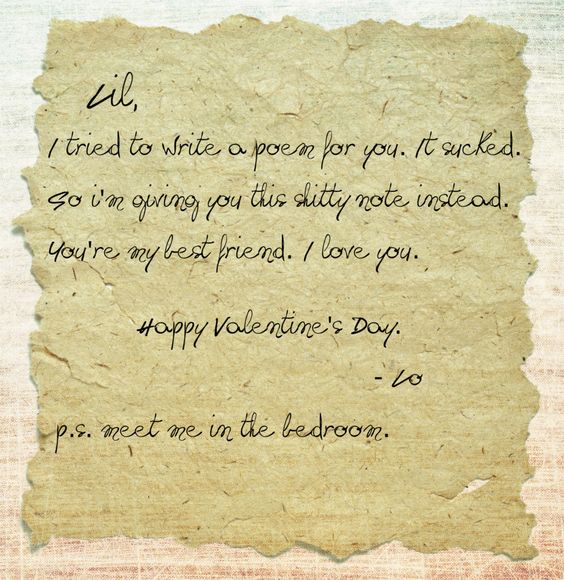 Lil,
I tried to write a poem for you. It sucked.
So i'm giving you this shitty note instead.
You're my best friend. I love you.
Happy Valentine's Day.
- Lo
p.s. meet me in the bedroom.